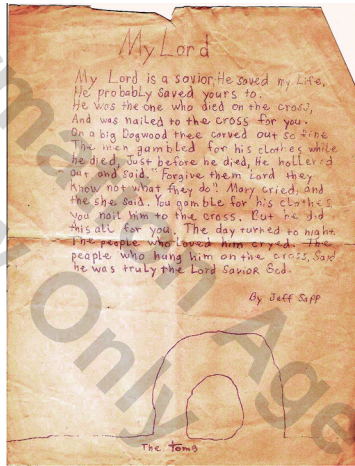 My Lord
My Lord is a savior, He saved my Life,
He probably saved yours to.
He was the one who died on the cross,
And was nailed to the cross for you.
On a big Dogwood tree carved out so fine
The men gambled for his clothes while
he died. Just before he died, He hollered
out and said, "Forgive them Lord they
Know not what they do". Mary cried, and
the she said. You gamble for his clothes
you nail him to the cross. But he did
this all for you. The day turned to night.
The people who loved him cryed. The
people who hung him on the cross, Said
he was truly the Lord Savior God.
By Jeff Sapp
The Tomb
Only